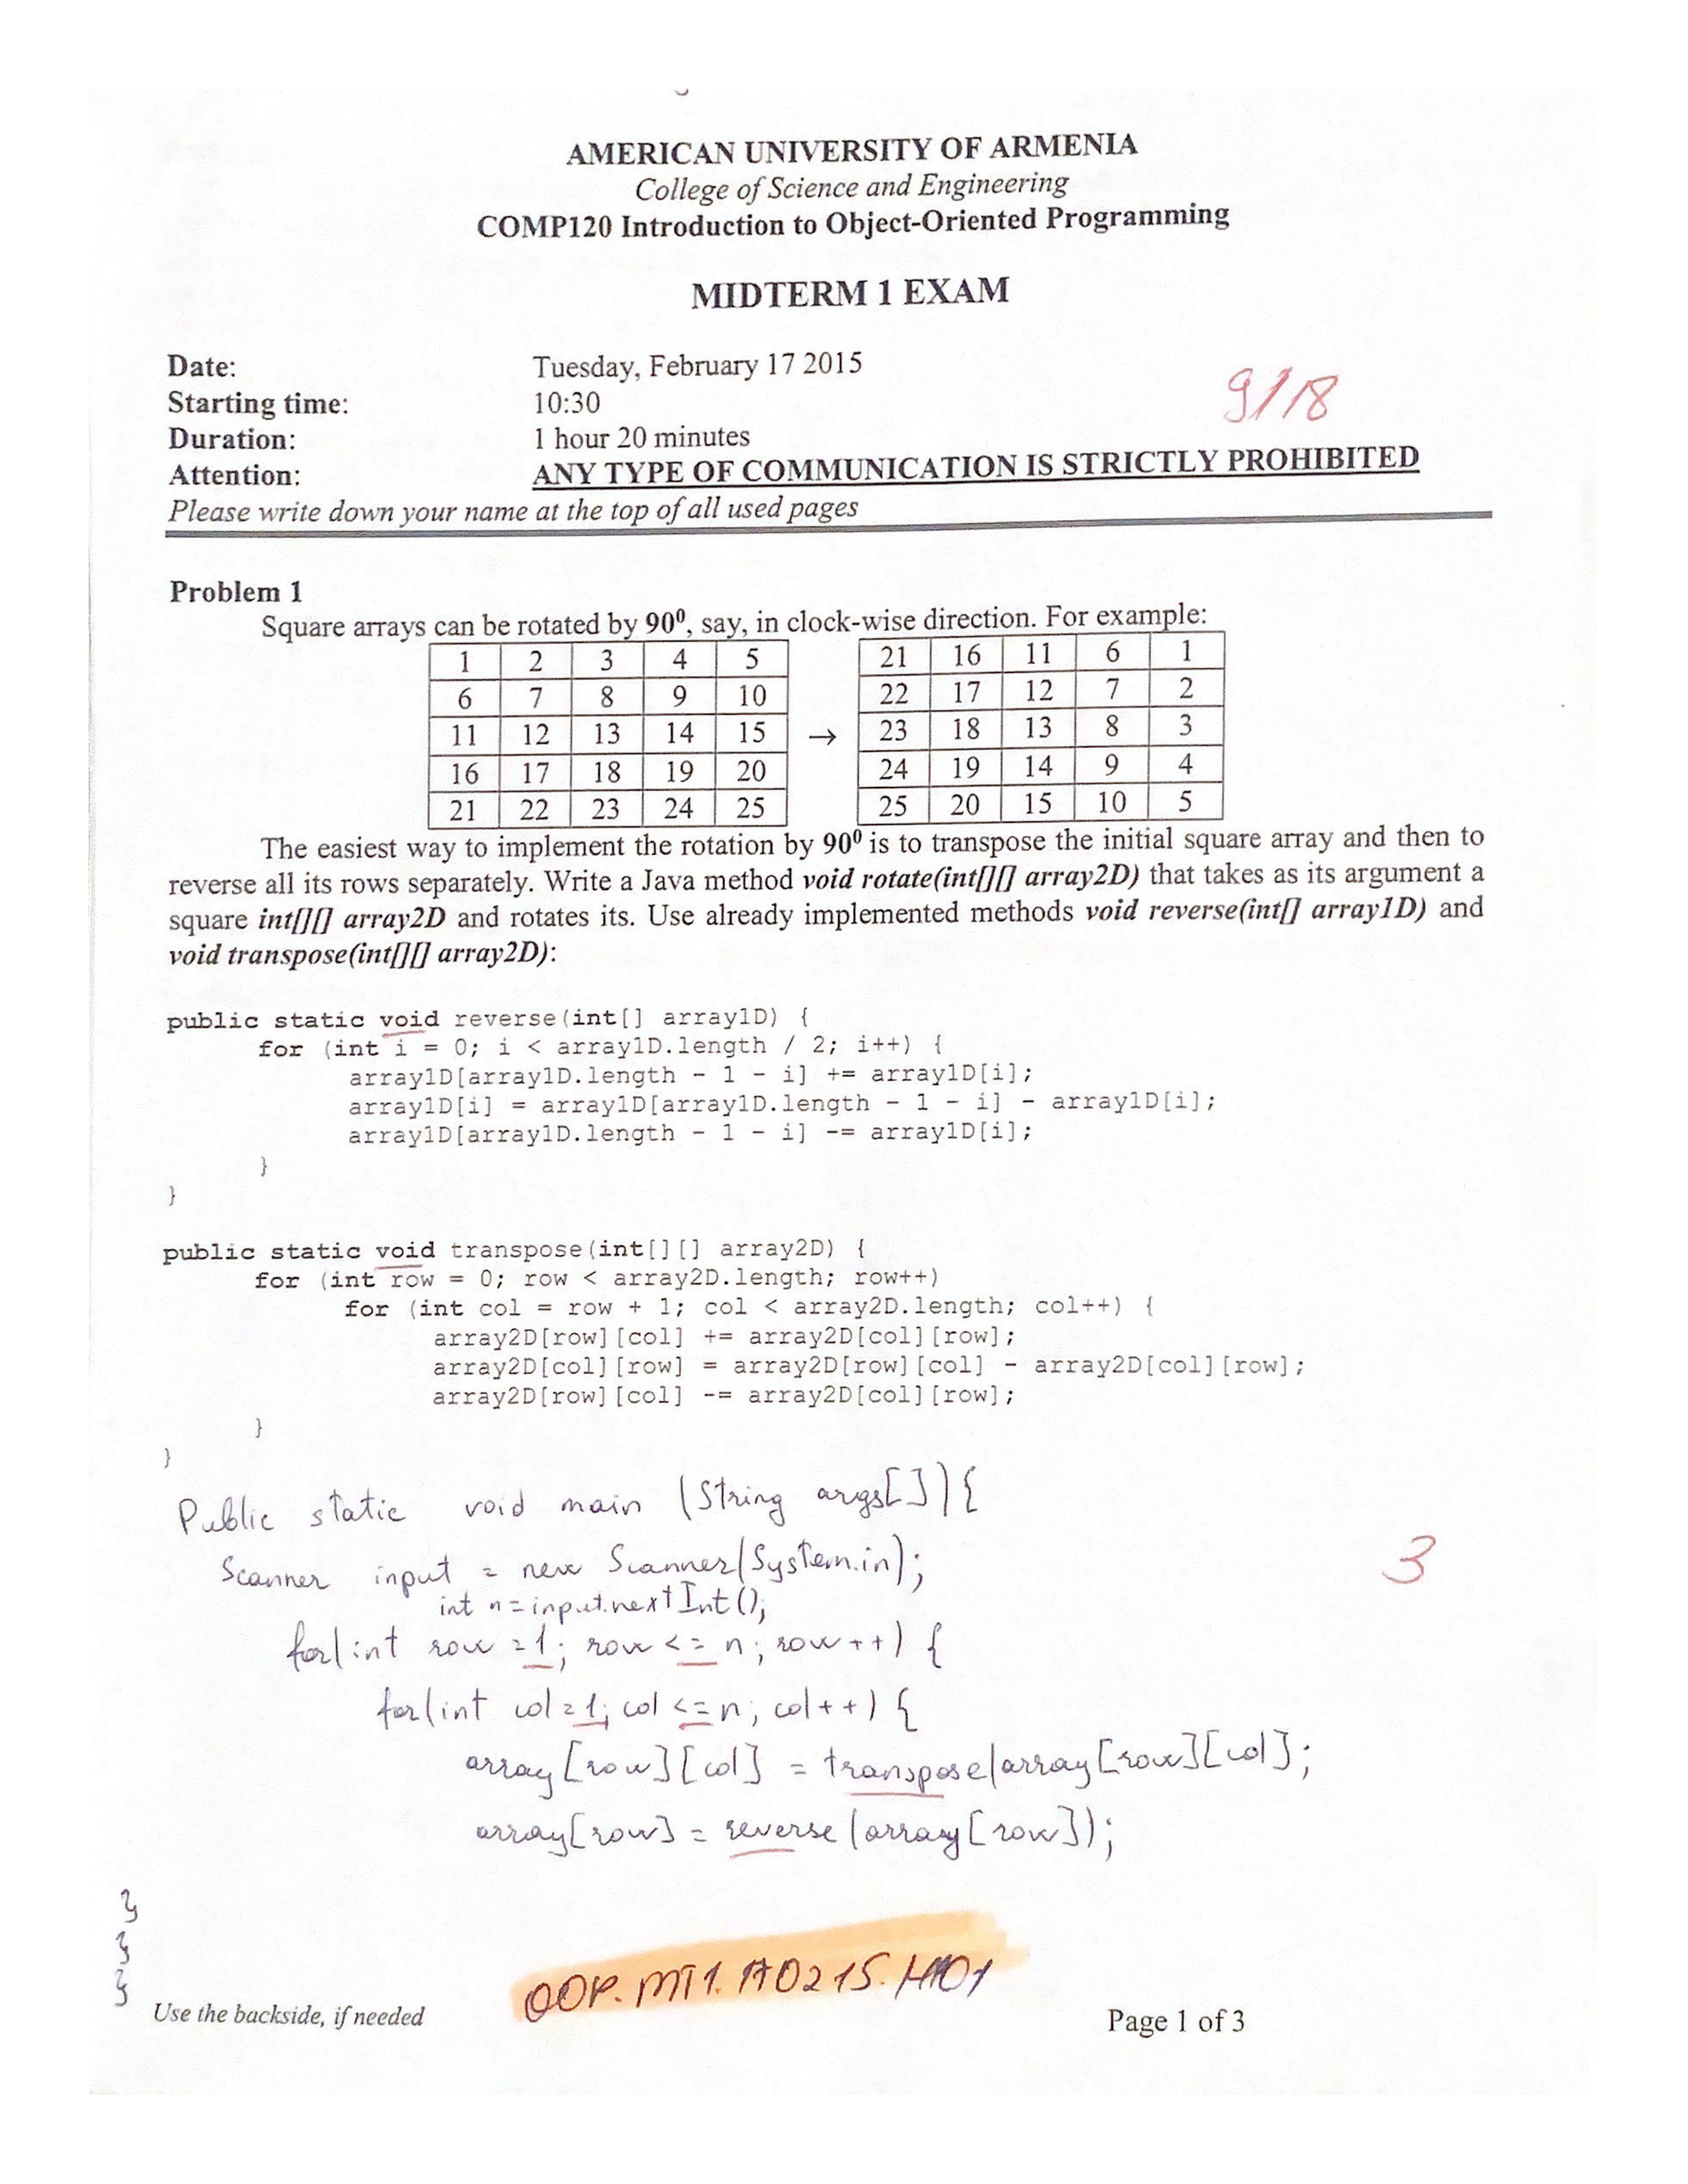 AMERICAN UNIVERSITY OF ARMENIA
College of Science and Engineering
COMP120 Introduction to Object-Oriented Programming
MIDTERM 1 EXAM
Date: Tuesday, February 17 2015
9/18
Starting time: 10:30
Duration: 1 hour 20 minutes
Attention: ANY TYPE OF COMMUNICATION IS STRICTLY PROHIBITED
Please write down your name at the top of all used pages
Problem 1
Square arrays can be rotated by 90⁰, say, in clock-wise direction. For example:
1 2 3 4 5 21 16 11 6 1
6 7 8 9 10 22 17 12 7 2
11 12 13 14 15 → 23 18 13 8 3
16 17 18 19 20 24 19 14 9 4
21 22 23 24 25 25 20 15 10 5
The easiest way to implement the rotation by 90⁰ is to transpose the initial square array and then to
reverse all its rows separately. Write a Java method void rotate(int[][] array2D) that takes as its argument a
square int[][] array2D and rotates its. Use already implemented methods void reverse(int[] array1D) and
void transpose(int[][] array2D):
public static void reverse(int[] array1D) {
for (int i = 0; i < array1D.length / 2; i++) {
array1D[array1D.length - 1 - i] += array1D[i];
array1D[i] = array1D[array1D.length - 1 - i] - array1D[i];
array1D[array1D.length - 1 - i] -= array1D[i];
}
}
public static void transpose(int[][] array2D) {
for (int row = 0; row < array2D.length; row++)
for (int col = row + 1; col < array2D.length; col++) {
array2D[row][col] += array2D[col][row];
array2D[col][row] = array2D[row][col] - array2D[col][row];
array2D[row][col] -= array2D[col][row];
}
}
Public static void main (String args[]){
Scanner input = new Scanner(System.in);
3
int n=input.nextInt();
for(int row =1; row <= n; row++) {
for(int col=1; col <=n; col++) {
array[row][col] = transpose(array[row][col];
array[row] = reverse(array[row]);
}
}
}
OOP.MT1.170215.H101
Use the backside, if needed
Page 1 of 3